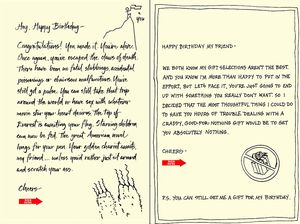 Hey, Happy Birthday -
Congratulations! You made it. You're alive.
Once again, you've escaped the claws of death.
There have been no fatal stabbings, accidental
poisonings or chainsaw malfunctions. You're
still got a pulse. You can still take that trip
around the world or have sex with whatever
movie star your heart desires. The top of
Everest is awaiting your flag. Starving children
can now be fed. The great American novel
longs for your pen. Your golden chariot awaits,
my friend... unless you'd rather just sit around
and scratch your ass.
Cheers -
you
HAPPY BIRTHDAY MY FRIEND -
WE BOTH KNOW MY GIFT SELECTIONS AREN'T THE BEST.
AND YOU KNOW I'M MORE THAN HAPPY TO PUT IN THE
EFFORT, BUT LET'S FACE IT, YOU'RE JUST GOING TO END
UP WITH SOMETHING YOU REALLY DON'T WANT. SO I
DECIDED THAT THE MOST THOUGHTFUL THING I COULD DO IS
TO SAVE YOU HOURS OF TROUBLE DEALING WITH A
CRAPPY, GOOD-FOR-NOTHING GIFT WOULD BE TO GET
YOU ABSOLUTELY NOTHING.
CHEERS -
P.S. YOU CAN STILL GET ME A GIFT FOR MY BIRTHDAY.